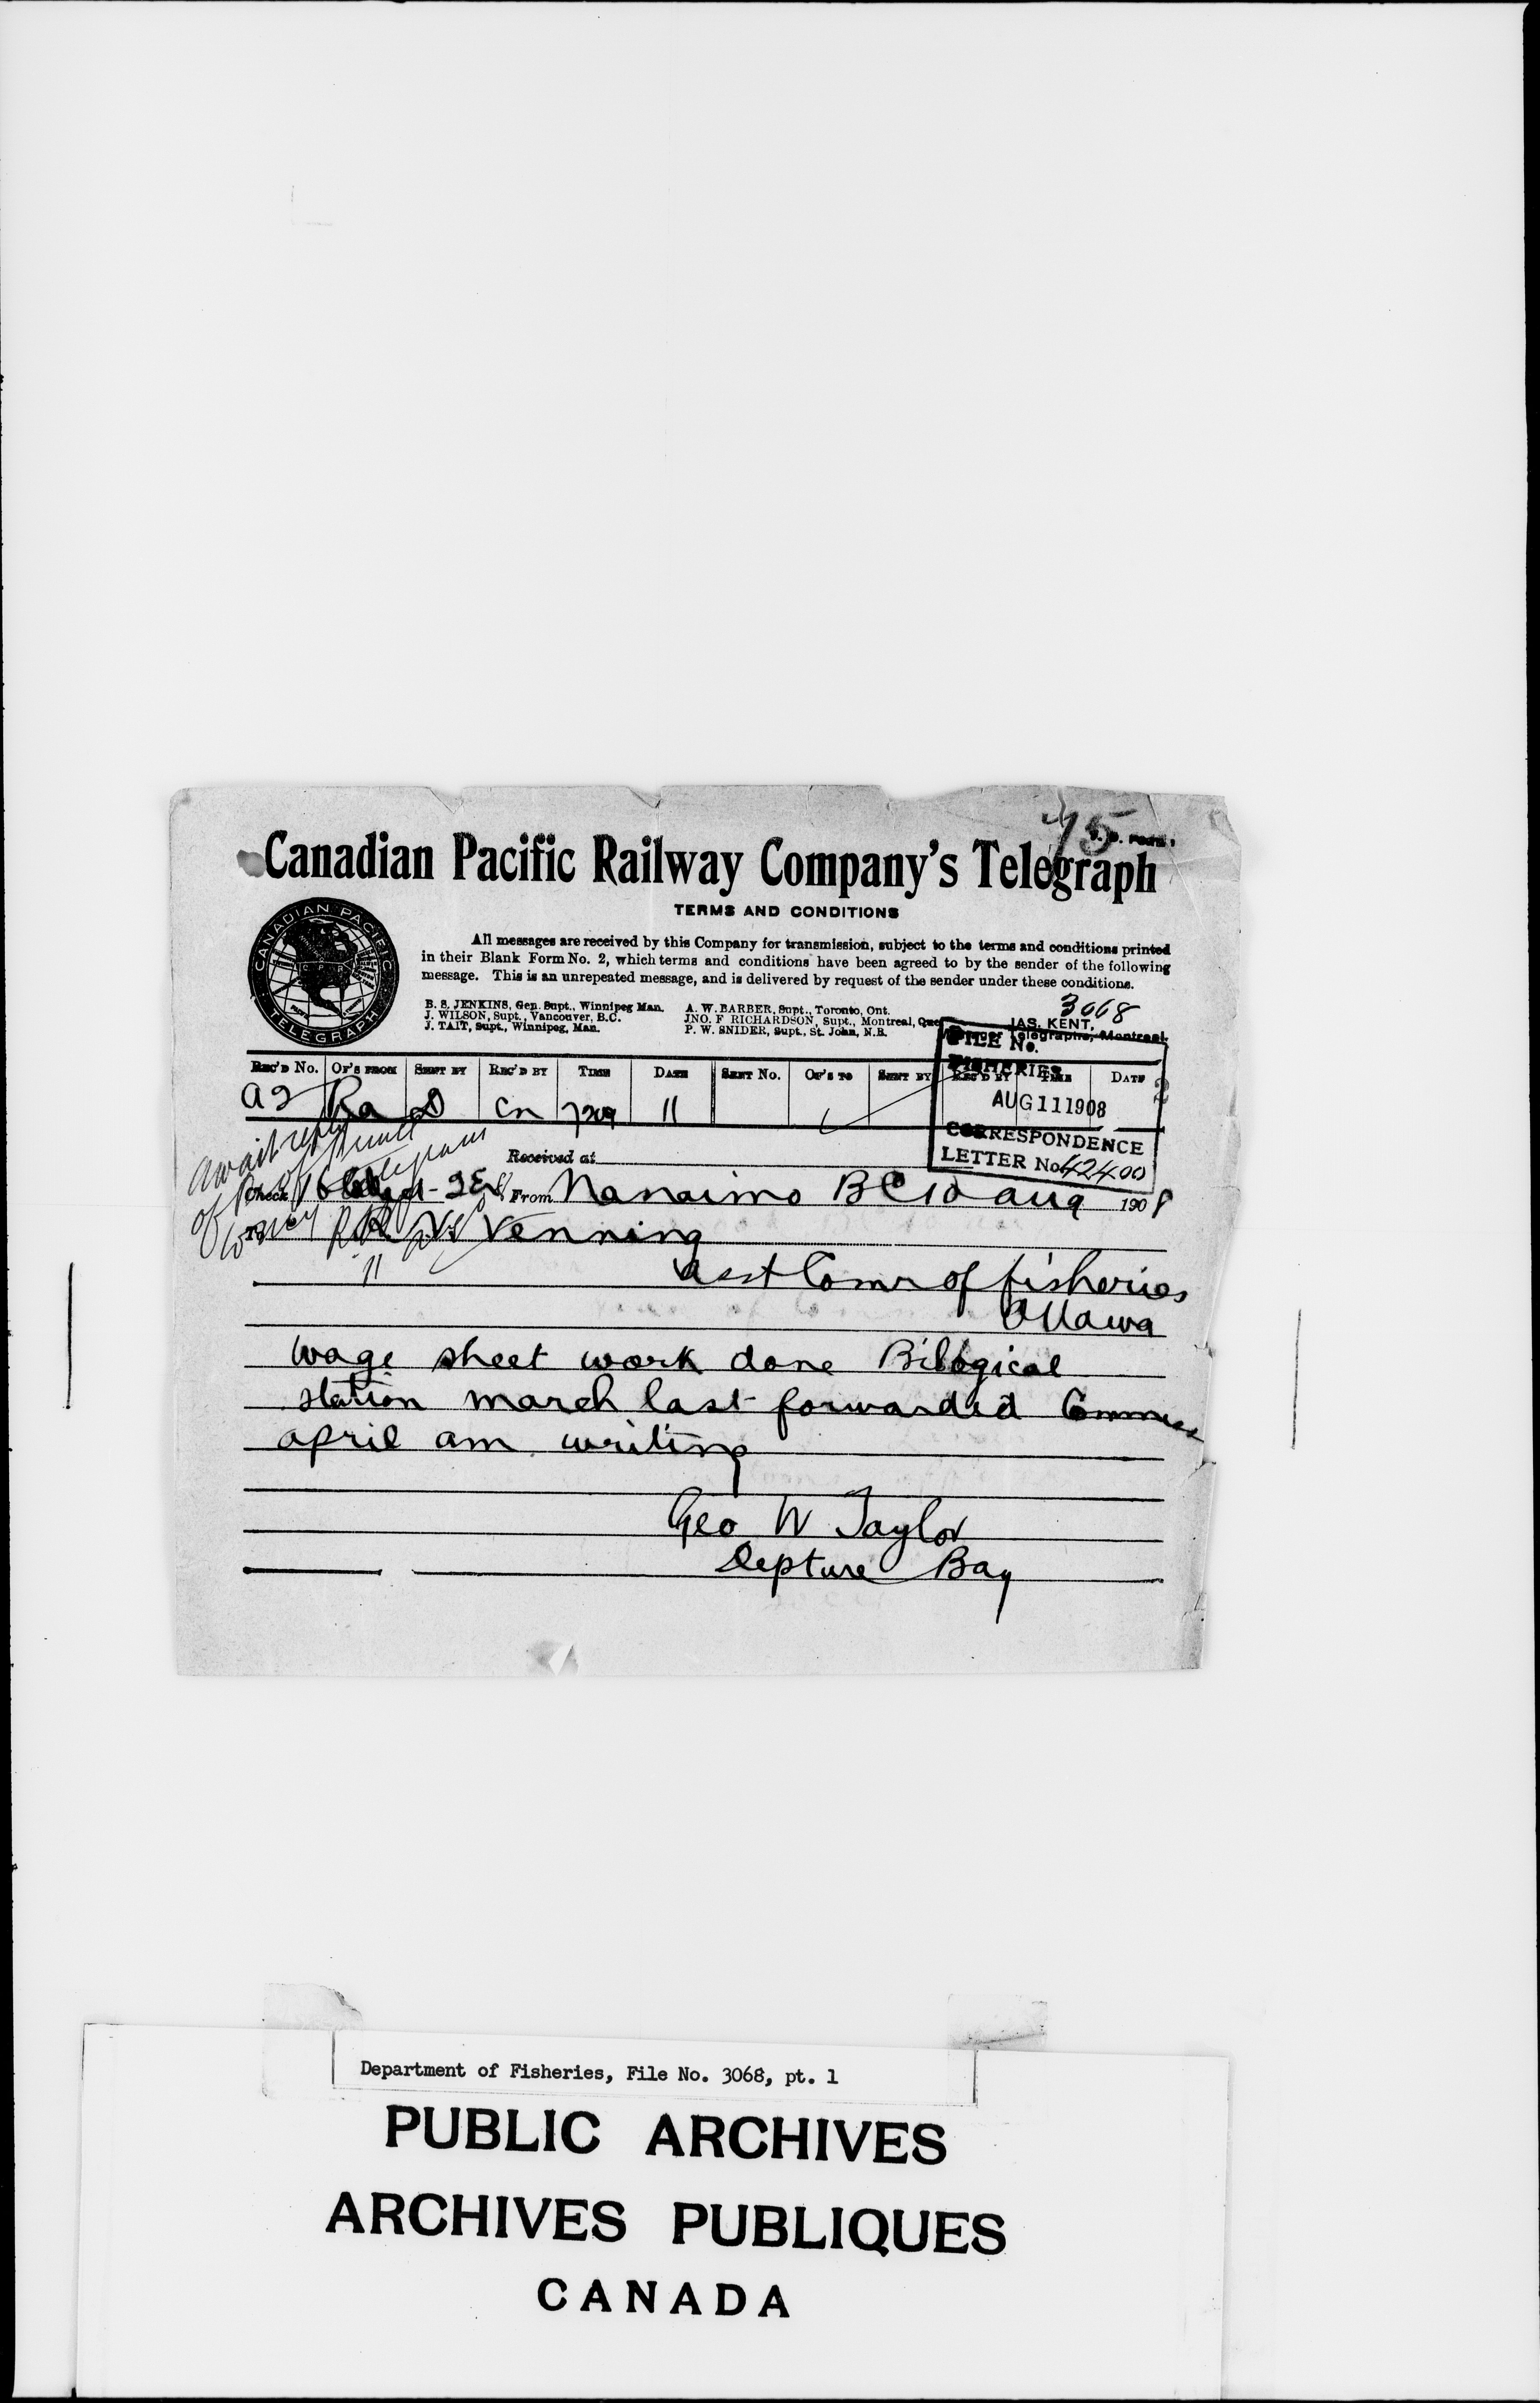 75
Canadian Pacific Railway Company's Telegraph
TERMS AND CONDITIONS
All messages are received by this Company for transmission, subject to the terms and conditions printed
in their Blank Form No. 2, which terms and conditions have been agreed to by the sender of the following
message. This is an unrepeated message, and is delivered by request of the sender under these conditions.
CANADIAN PACIFIC
TELEGRAPH
B. S. JENKINS, Gen. Supt., Winnipeg Man.
J. WILSON, Supt., Vancouver, B.C.
J. TAIT, Supt., Winnipeg, Man.
A. W. BARBER, Supt., Toronto, Ont.
JNO. F RICHARDSON, Supt., Montreal, Que
P. W. SNIDER, Supt., St. John, N.B.
3068
JAS. KENT,
Telegraphs, Montreal.
FILE No.
FISHERIES
AUG 11 1908
CORRESPONDENCE
LETTER No 42400
REC'D No. OF'S FROM SENT BY REC'D BY TIME DATE SENT No. OF'S TO SENT BY REC'D BY TIME DATE
Ra D Cn 11
Await reply
Received at
Check 16 From Nanaimo BC 10 aug 1908
Venning
Asst Comr of fisheries
Ottawa
wage sheet work done Bilogical
station march last forwarded
april am writing
Geo W Taylor
Depture Bay
Department of Fisheries, File No. 3068, pt. 1
PUBLIC ARCHIVES
ARCHIVES PUBLIQUES
CANADA